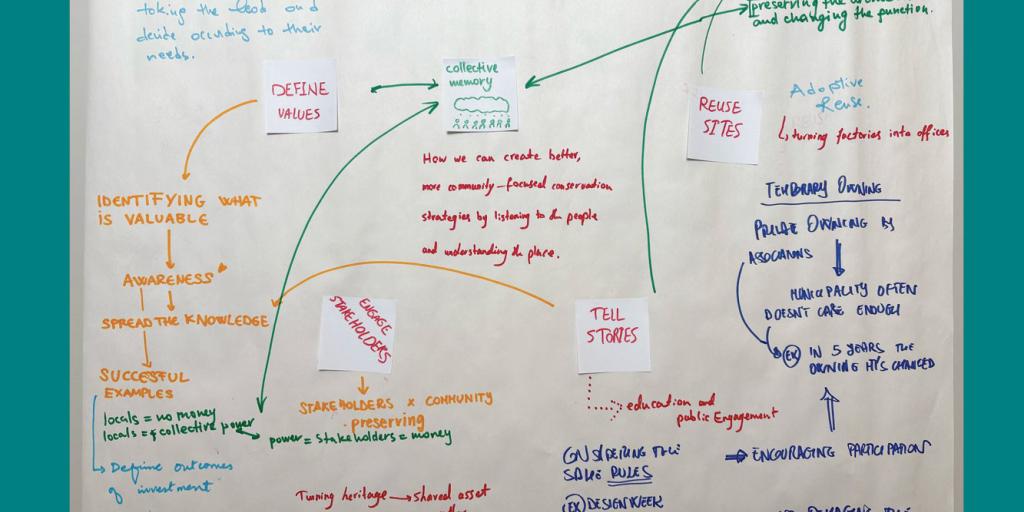 taking the
decide according to their
needs.
preserving the
and changing the function.
DEFINE
VALUES
collective
memory
REUSE
SITES
Adaptive
Reuse.
turning factories into offices
How we can create better,
more community-focused conservation
strategies by listening to the people
and understanding the place.
IDENTIFYING WHAT
IS VALUABLE
AWARENESS
SPREAD THE KNOWLEDGE
SUCCESSFUL
EXAMPLES
locals = no money
locals = collective power
power = stakeholders = money
Define outcomes
of investment
ENGAGE
STAKEHOLDERS
STAKEHOLDERS X COMMUNITY
preserving
Turning heritage → shared asset
TELL
STORIES
education and
public Engagement
TEMPORARY OWNING
PRIVATE OWNING BY
MUNICIPALITY OFTEN
DOESN'T CARE ENOUGH
EX IN 5 YEARS THE
OWNING CHANGED
⇒ ENCOURAGING PARTICIPATION
CONSIDERING THE
SAME RULES
EX DESIGN WEEK